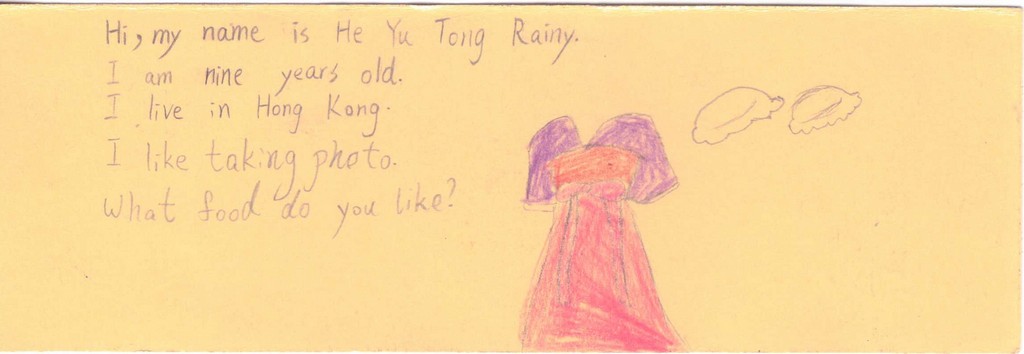 Hi, my name is He Yu Tong Rainy.
I am nine years old.
I live in Hong Kong.
I like taking photo.
What food do you like?